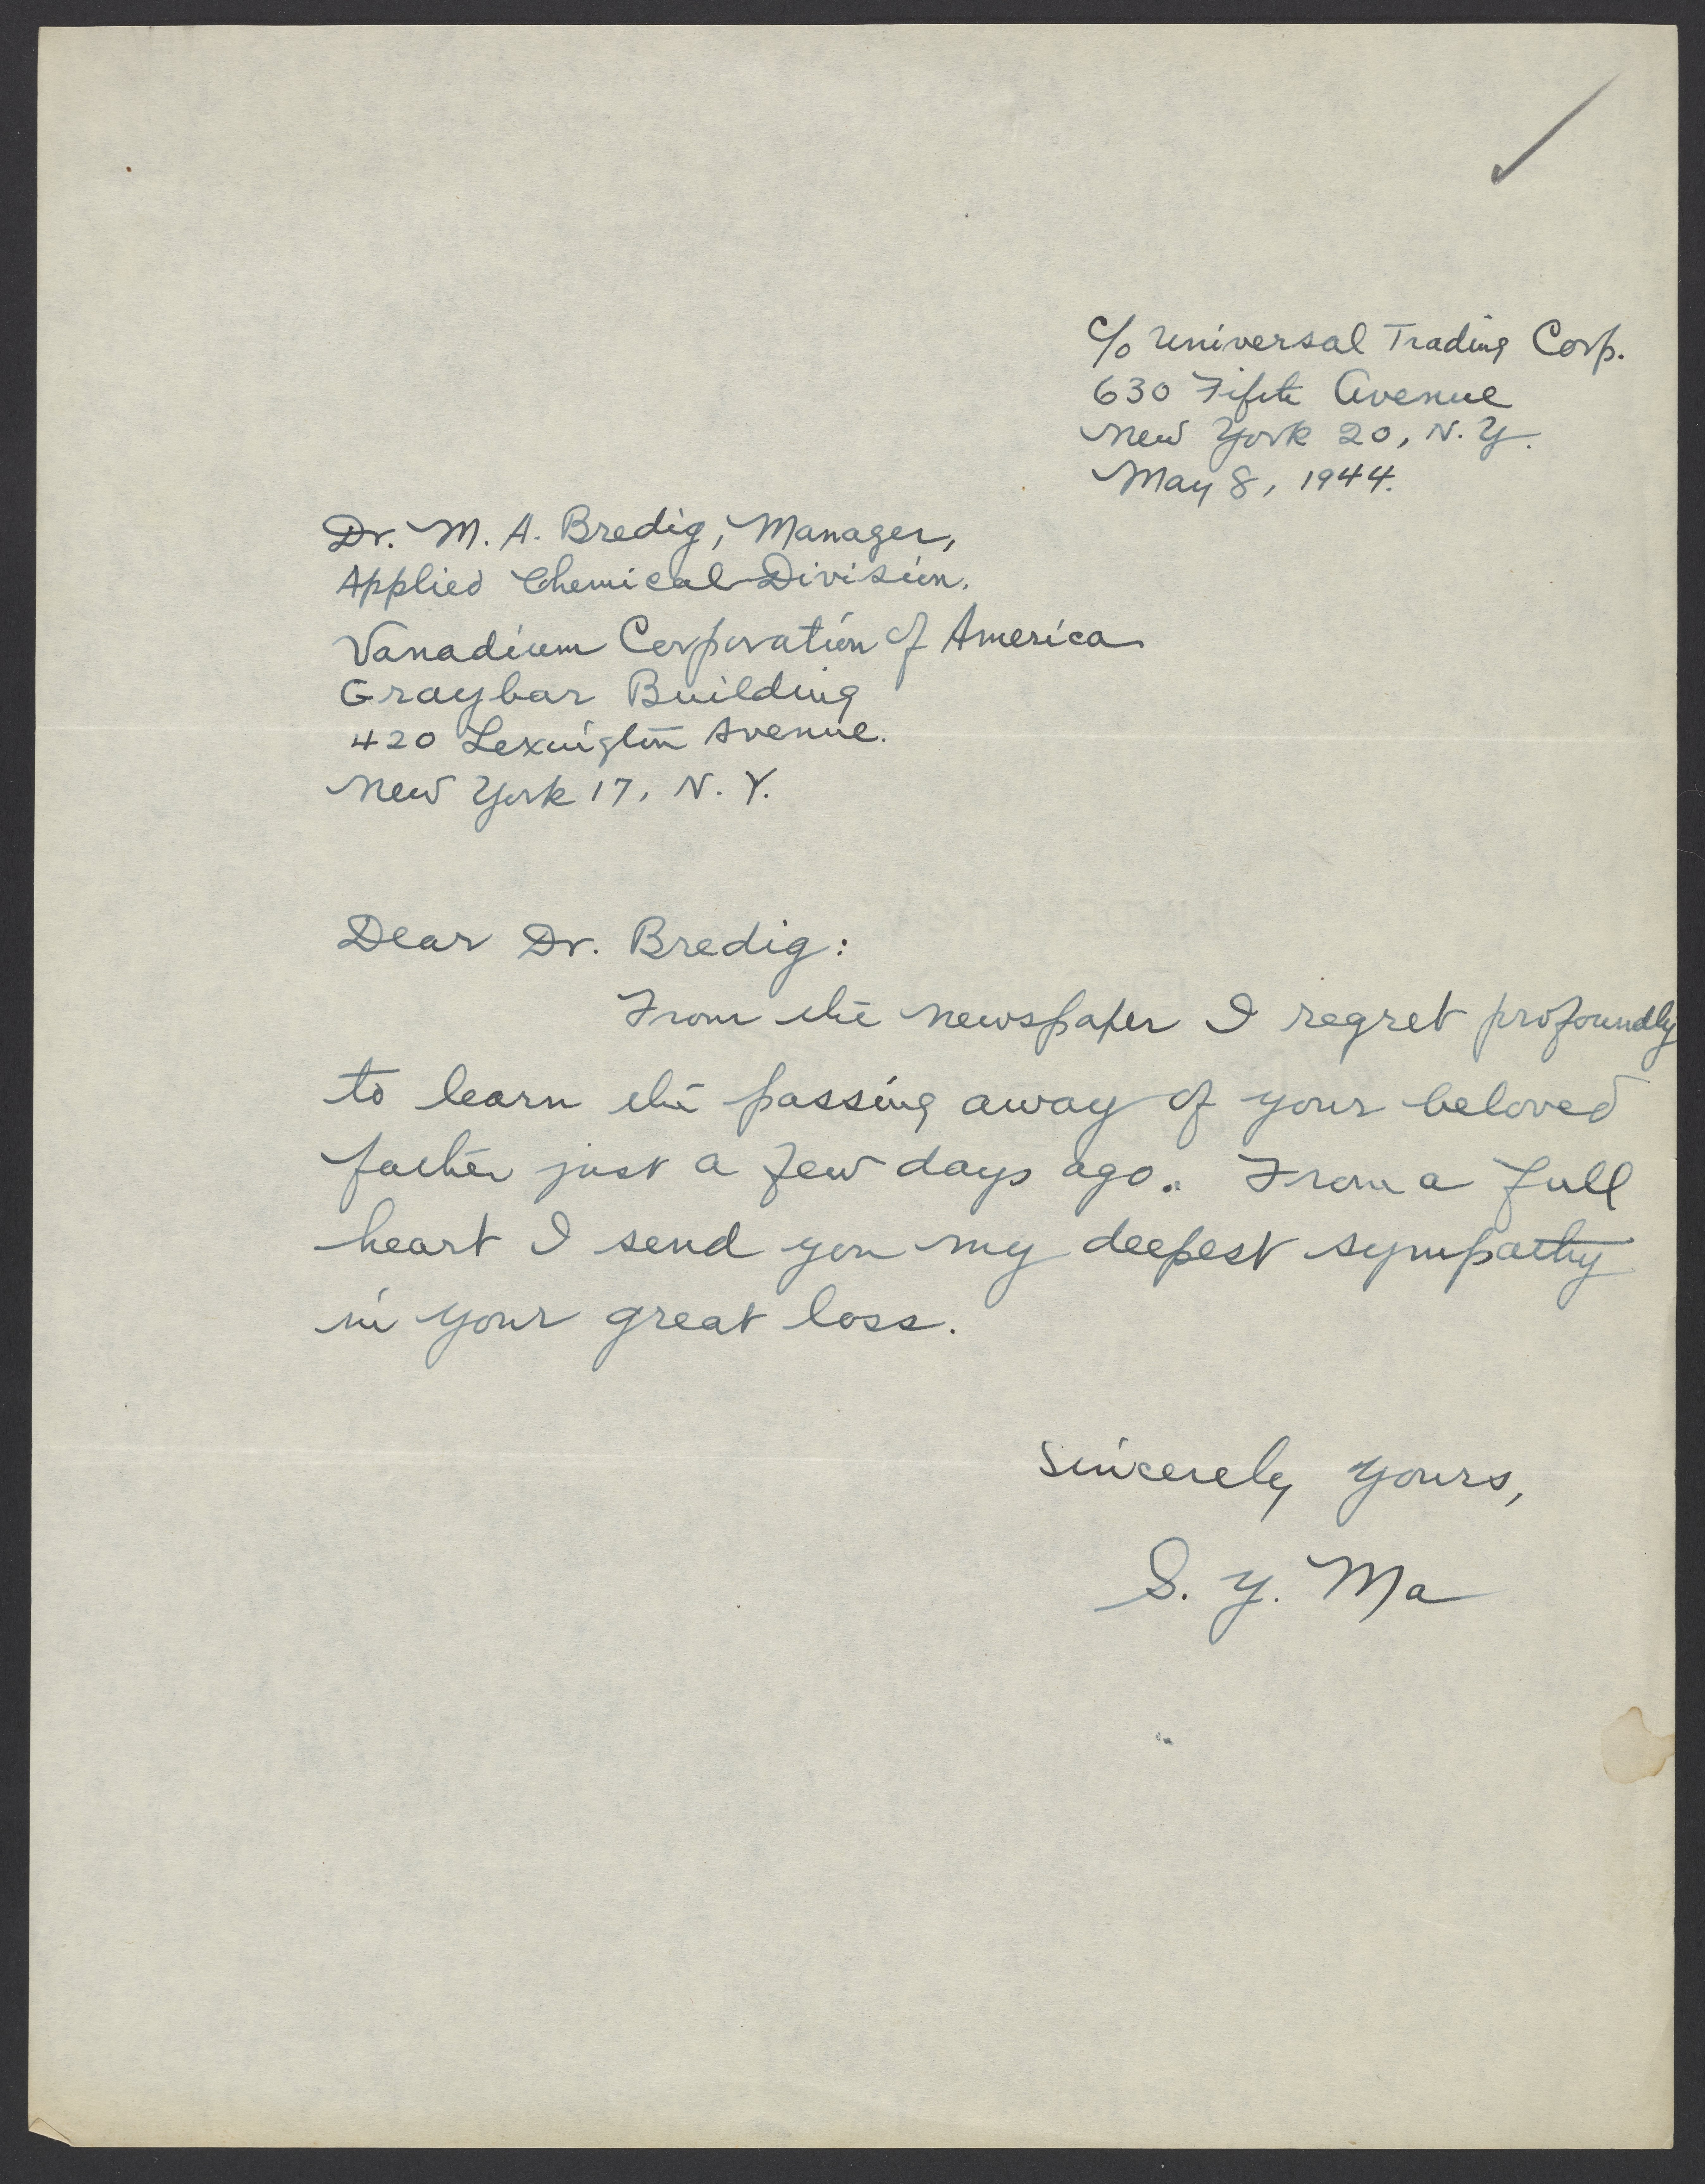 c/o Universal Trading Corp.
630 Fifth Avenue
New York 20, N.Y.
May 8, 1944.
Dr. M. A. Bredig, Manager,
Applied Chemical Division.
Vanadium Corporation of America
Graybar Building
420 Lexington Avenue.
New York 17, N. Y.
Dear Dr. Bredig:
From the newspaper I regret profoundly
to learn the passing away of your beloved
father just a few days ago. From a full
heart I send you my deepest sympathy
in your great loss.
Sincerely yours,
S. Y. Ma